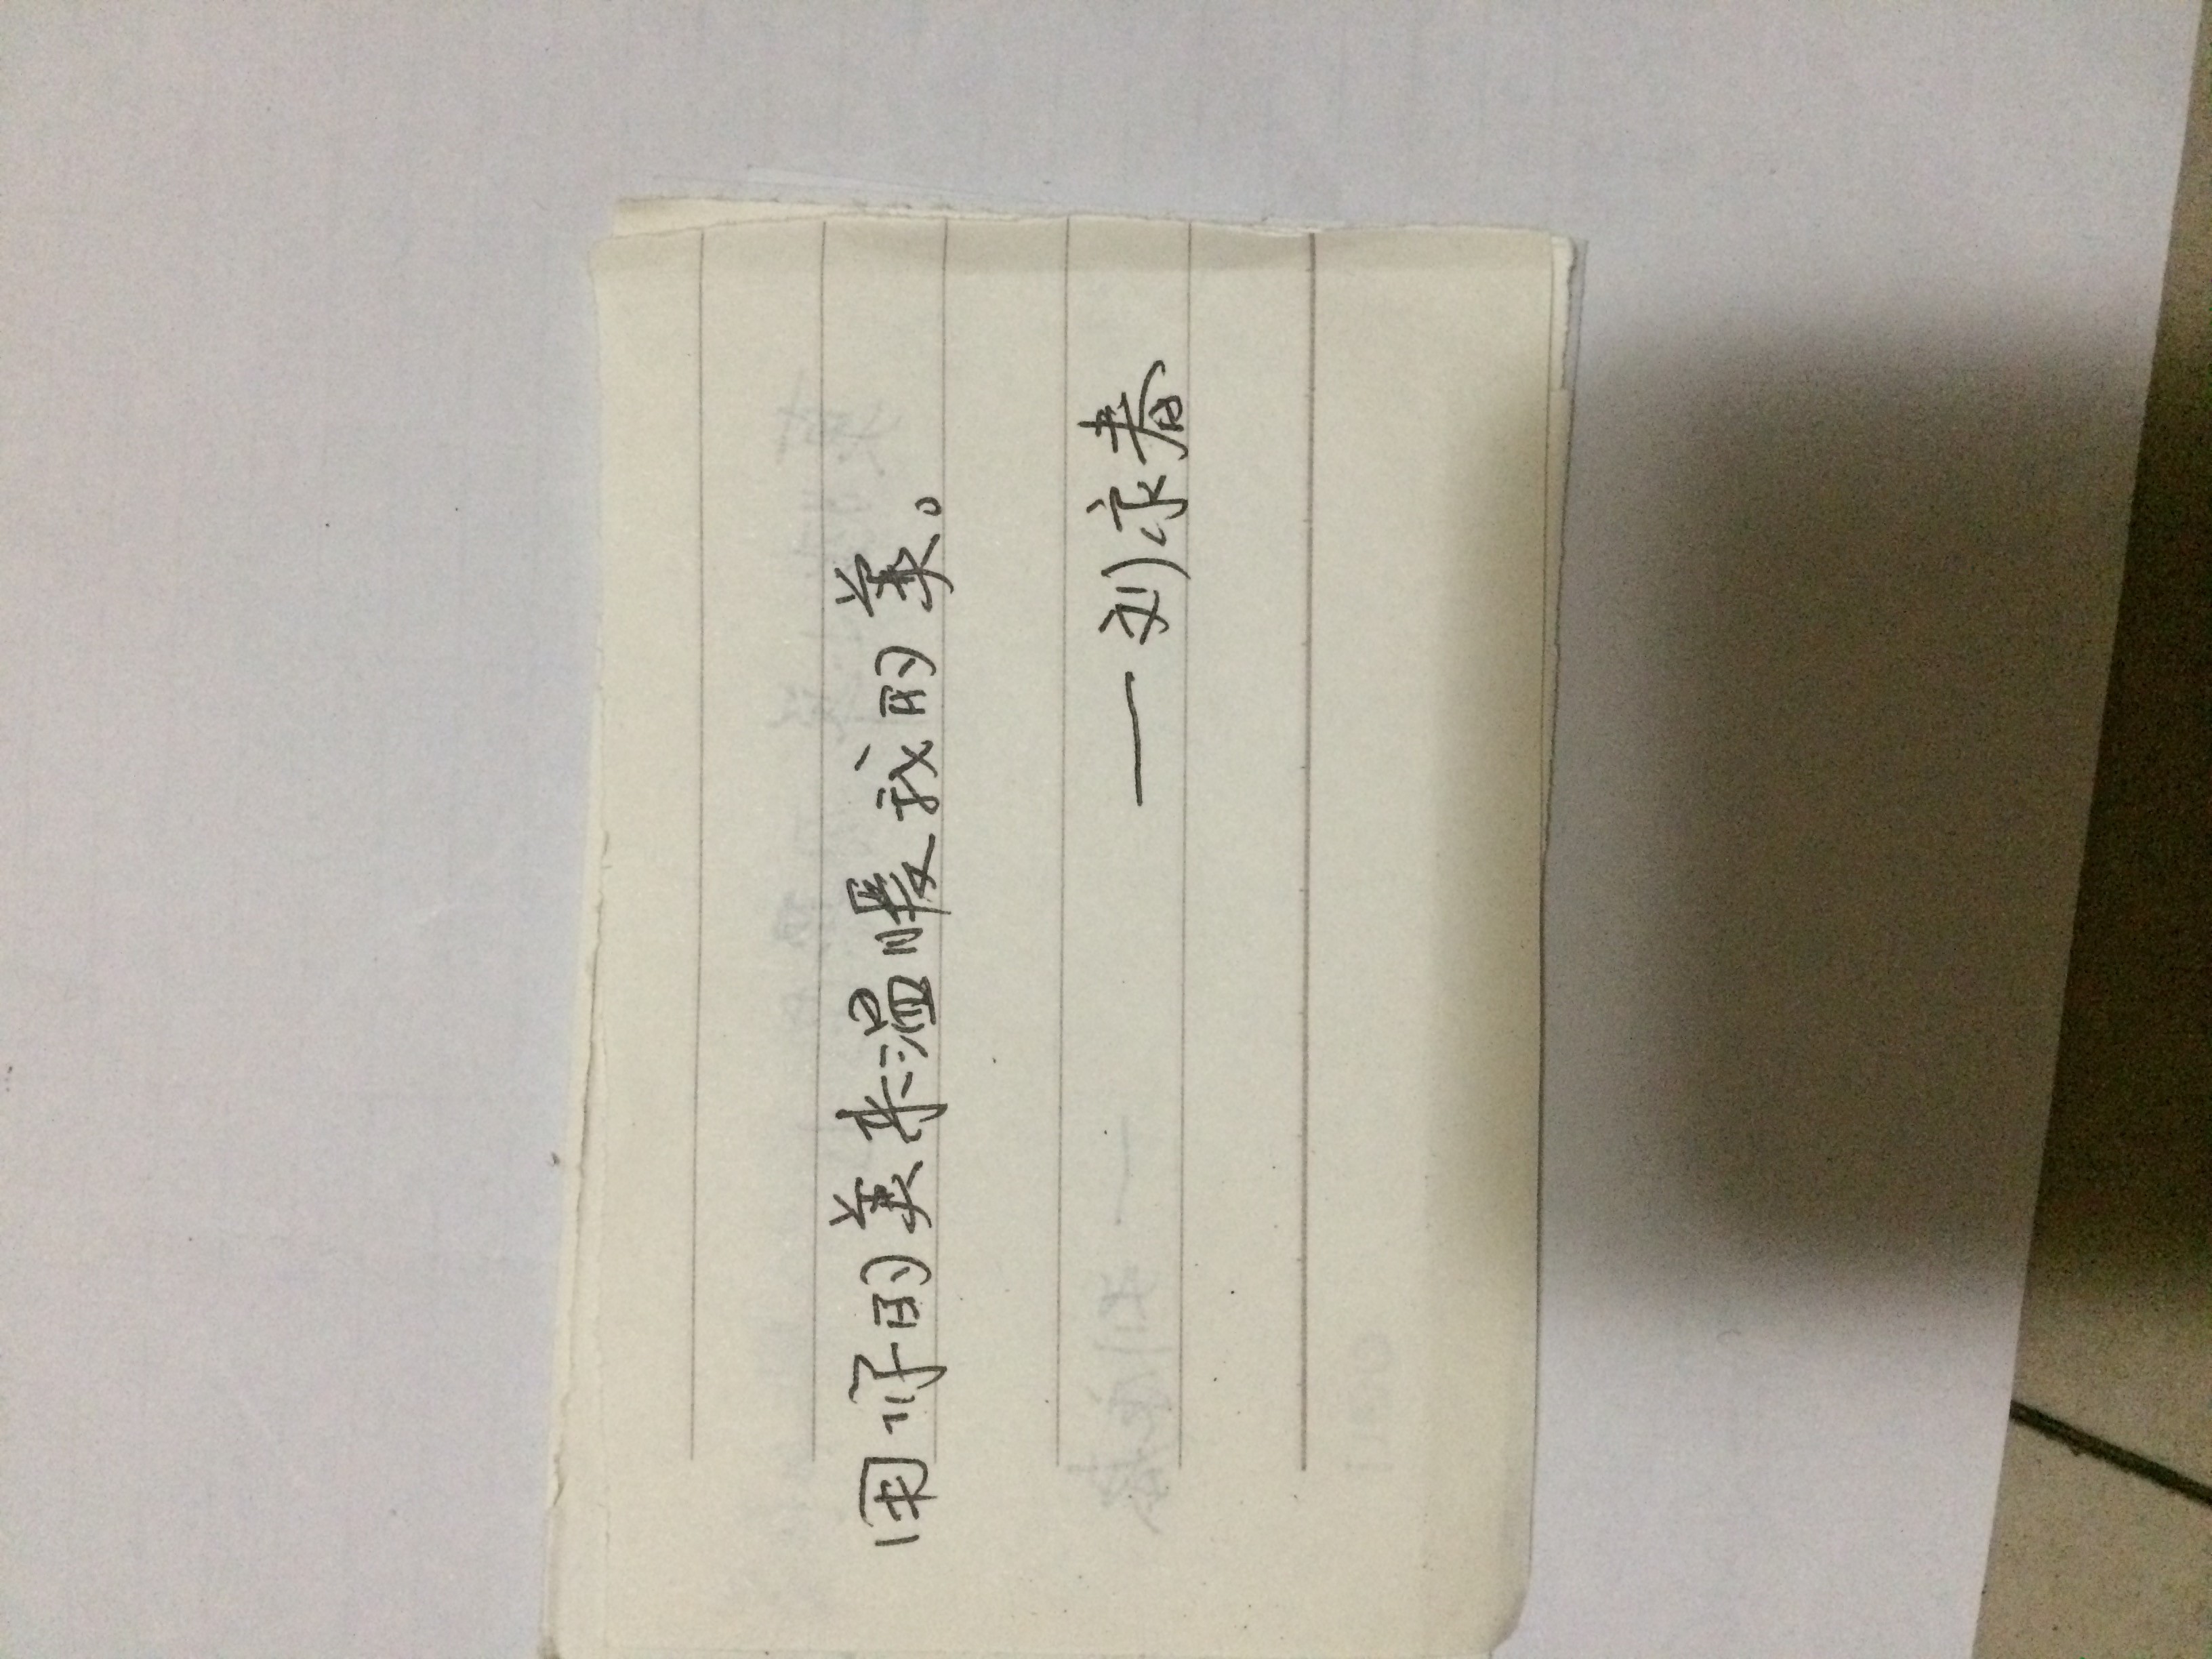 用你的美来温暖我的美。
—刘永春